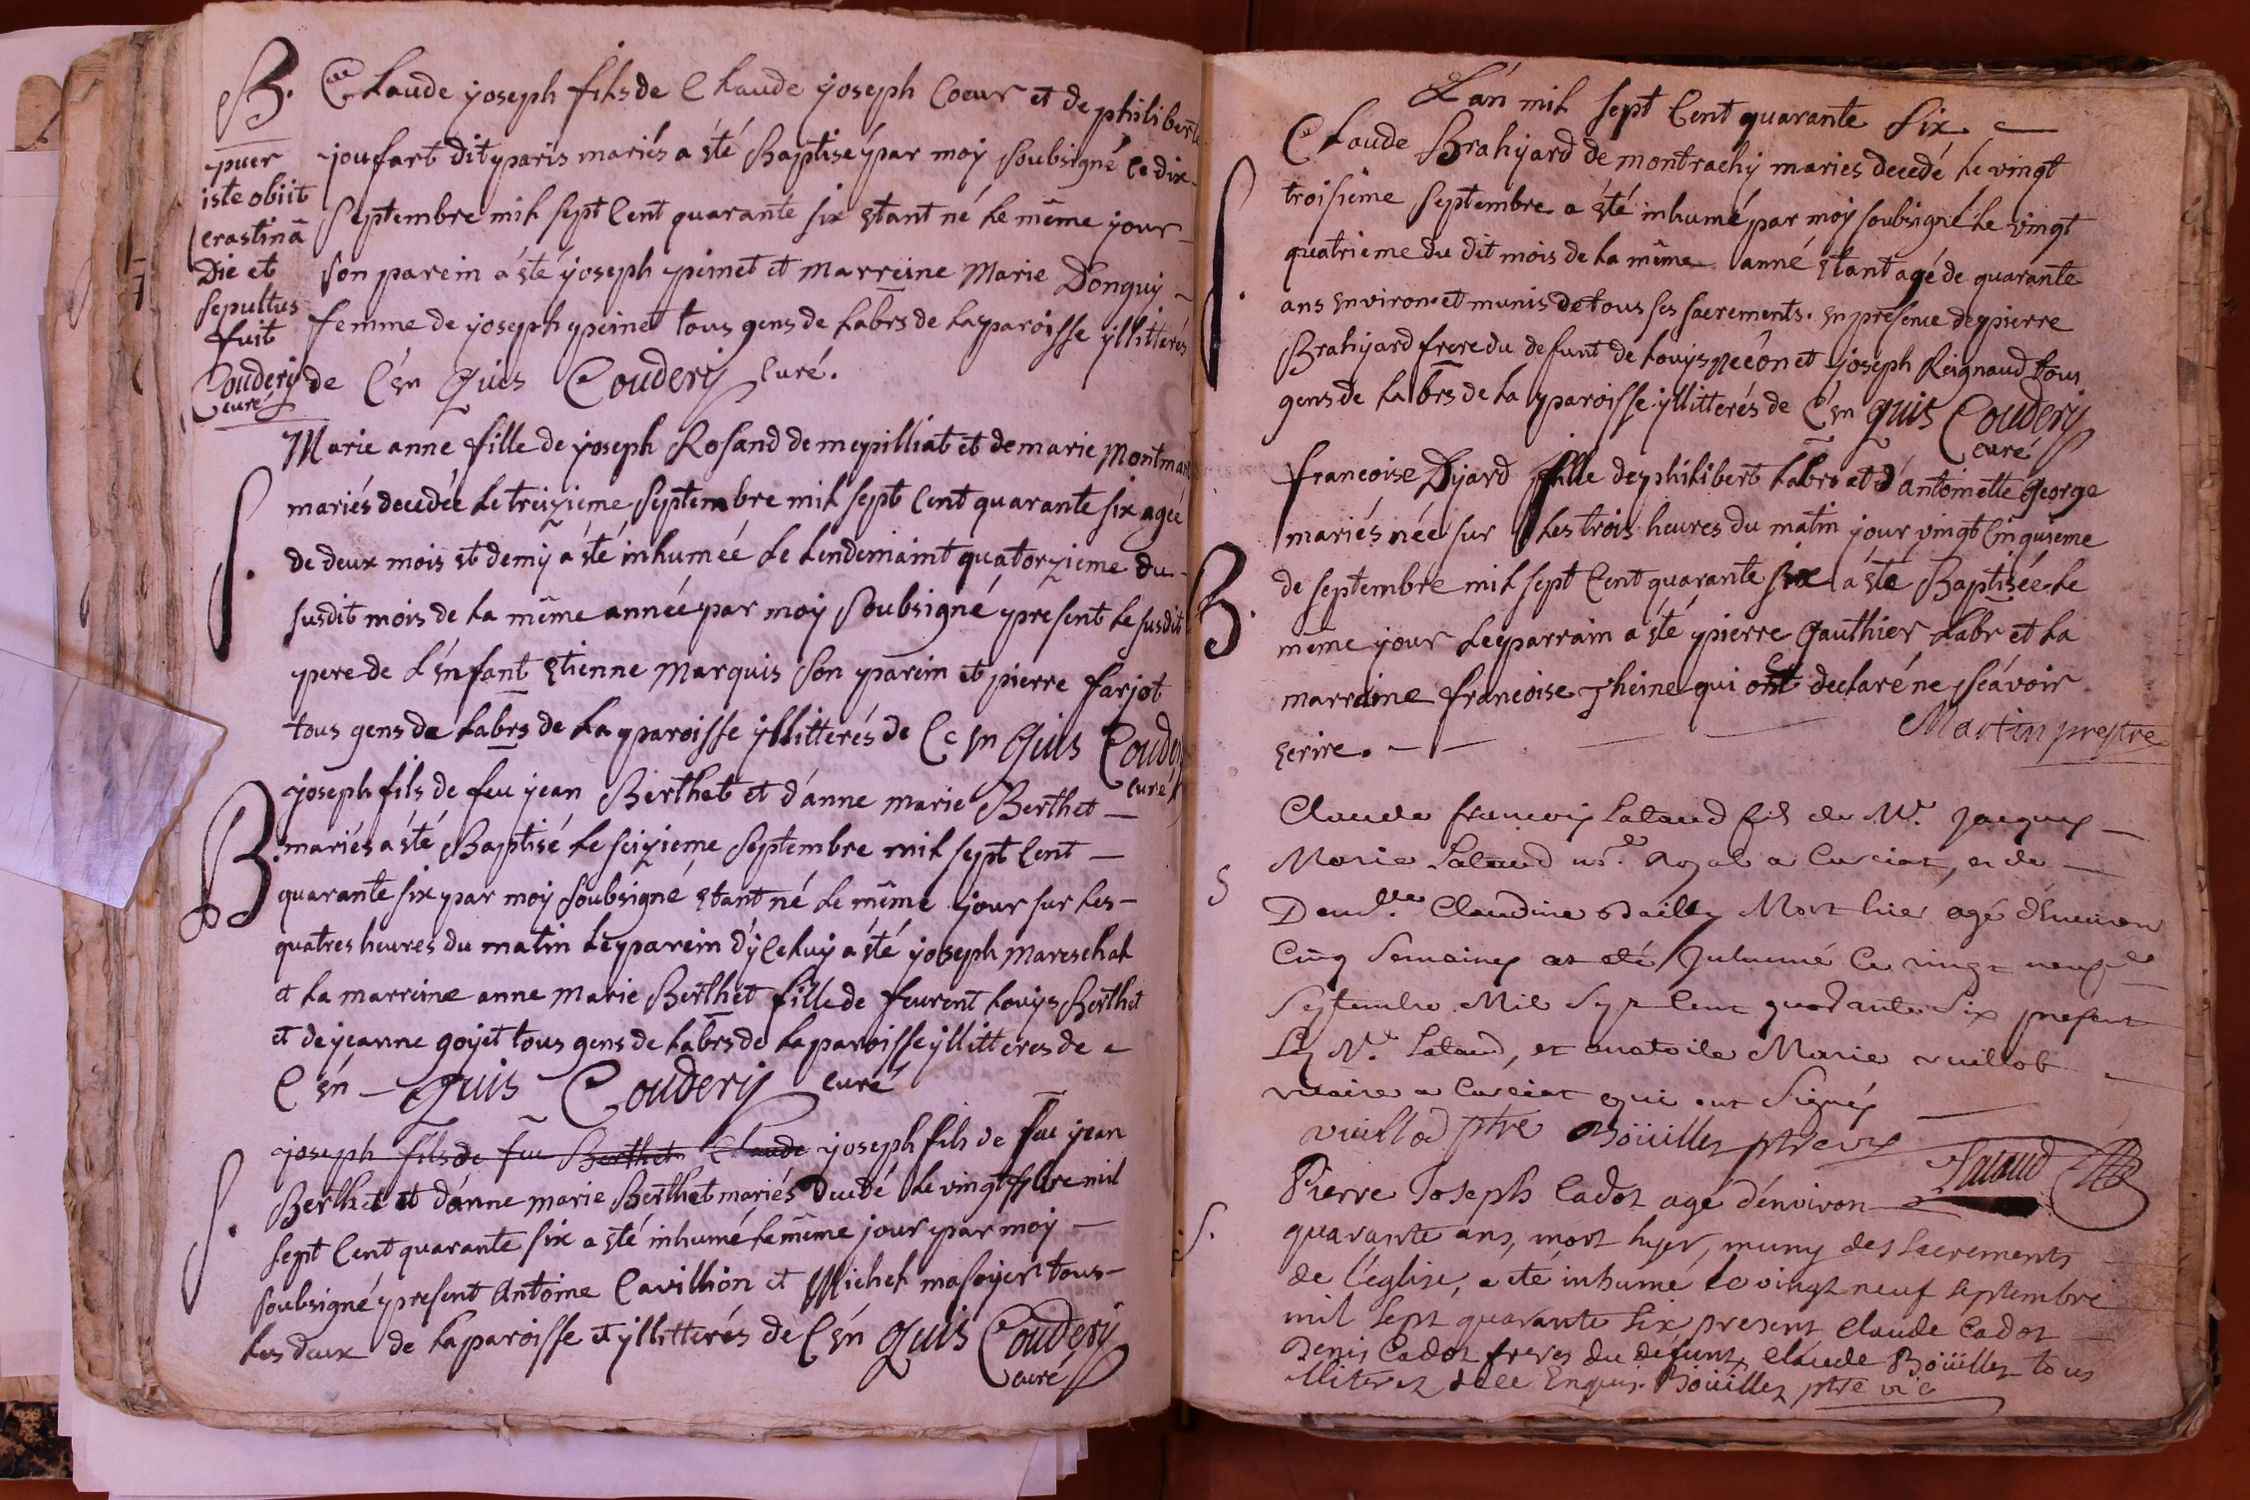 B.
puer
iste obiit
crastinâ
Die et
sepultus
fuit
Coudery
curé
Claude joseph fils de Claude joseph Coeur et de philiberte
joufart dit paris mariés a été Baptisé par moy soubsigné le dix
septembre mil sept Cent quarante six étant né le même jour
son parein a été joseph piret et marreine Marie Donguy
femme de joseph peinet tous gens de labrs de la paroisse yllitterés
de C én quis Coudery Curé.
S.
Marie anne fille de joseph Rosand de mepilliat et de marie Montmar
mariés decedée le treizieme septembre mil sept Cent quarante six agée
de deux mois et demy a été inhumée le lendemaint quatorzieme du
susdit mois de la même année par moy soubsigné present le susdit
pere de l'énfant étienne Marquis son parein et pierre farjot
tous gens de labrs de la paroisse yllitterés de Ce én quis Coudery
curé
B.
joseph fils de feu jean Berthet et d'anne marie Berthet
mariés a été Baptisé le seizieme septembre mil sept Cent
quarante six par moy soubsigné étant né le même jour sur les
quatres heures du matin le parein d'yceluy a été joseph mareschal
et la marreine anne marie Berthet fille de feurent louys Berthet
et de jeanne goyet tous gens de labrs de la paroisse yllitteres de
C én quis Coudery curé
S.
joseph fils de feu Berthet Claude joseph fils de feu jean
Berthet et d'anne marie Berthet mariés decedé le vingt 7bre mil
sept Cent quarante six a été inhumé le même jour par moy
soubsigné present Antoine Cavillion et Michel masoyer tous
les deux de la paroisse et yllitterés de C én quis Coudery
curé
L'an mil sept Cent quarante six
S.
Claude Brahyard de montrachy mariés decedé le vingt
troisième septembre a été inhumé par moy soubsigné le vingt
quatrieme du dit mois de la même anné étant agé de quarante
ans environ et munis de tous ses sacrements. en presence de pierre
Brahyard frere du defunt de louys peéon et joseph Reignaud tous
gens de labrs de la paroisse yllitterés de C én quis Coudery
curé
B.
francoise Dyard fille de philibert labrs et d'antoinette George
mariés née sur les trois heures du matin jour vingt Cinquieme
de septembre mil sept Cent quarante six a été Baptisée le
même jour le parrain a été pierre Gauthier labr et la
marraine francoise Theine qui ont declaré ne sçavoir
ecrire.
Martin prestre
S
Claude francois Lataud fils de Mr. Jacques
Marie Lataud nre. Royal a Curciat, et de
Demlle. Claudine Bailly Mort hier agé d'Environ
Cinq Semaines at été Inhumé le vingt neuf
Septembre Mil Sept Cent quarante Six present
Ledt. Lataud, et anatoile Marie vuillot
vicaire a Curciat qui ont Signés
vuillod ptre Boüillet ptre vic Lataud
S.
Pierre Joseph Cadot agé d'environ
quarante ans, mort hyer, muny des sacrements
de l'église, a été inhumé le vingt neuf septembre
mil sept quarante six present Claude Cadot
Denis Cadot freres du défunt, Claude Boüillet tous
illiterez de ce Enquis. Boüillet ptre vic